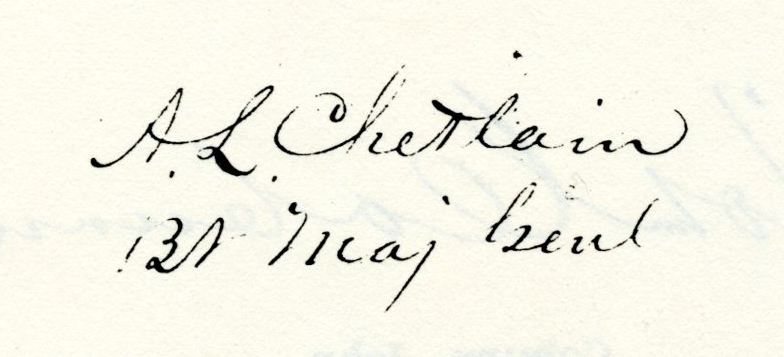 A. L. Chetlain
Bt Maj Genl